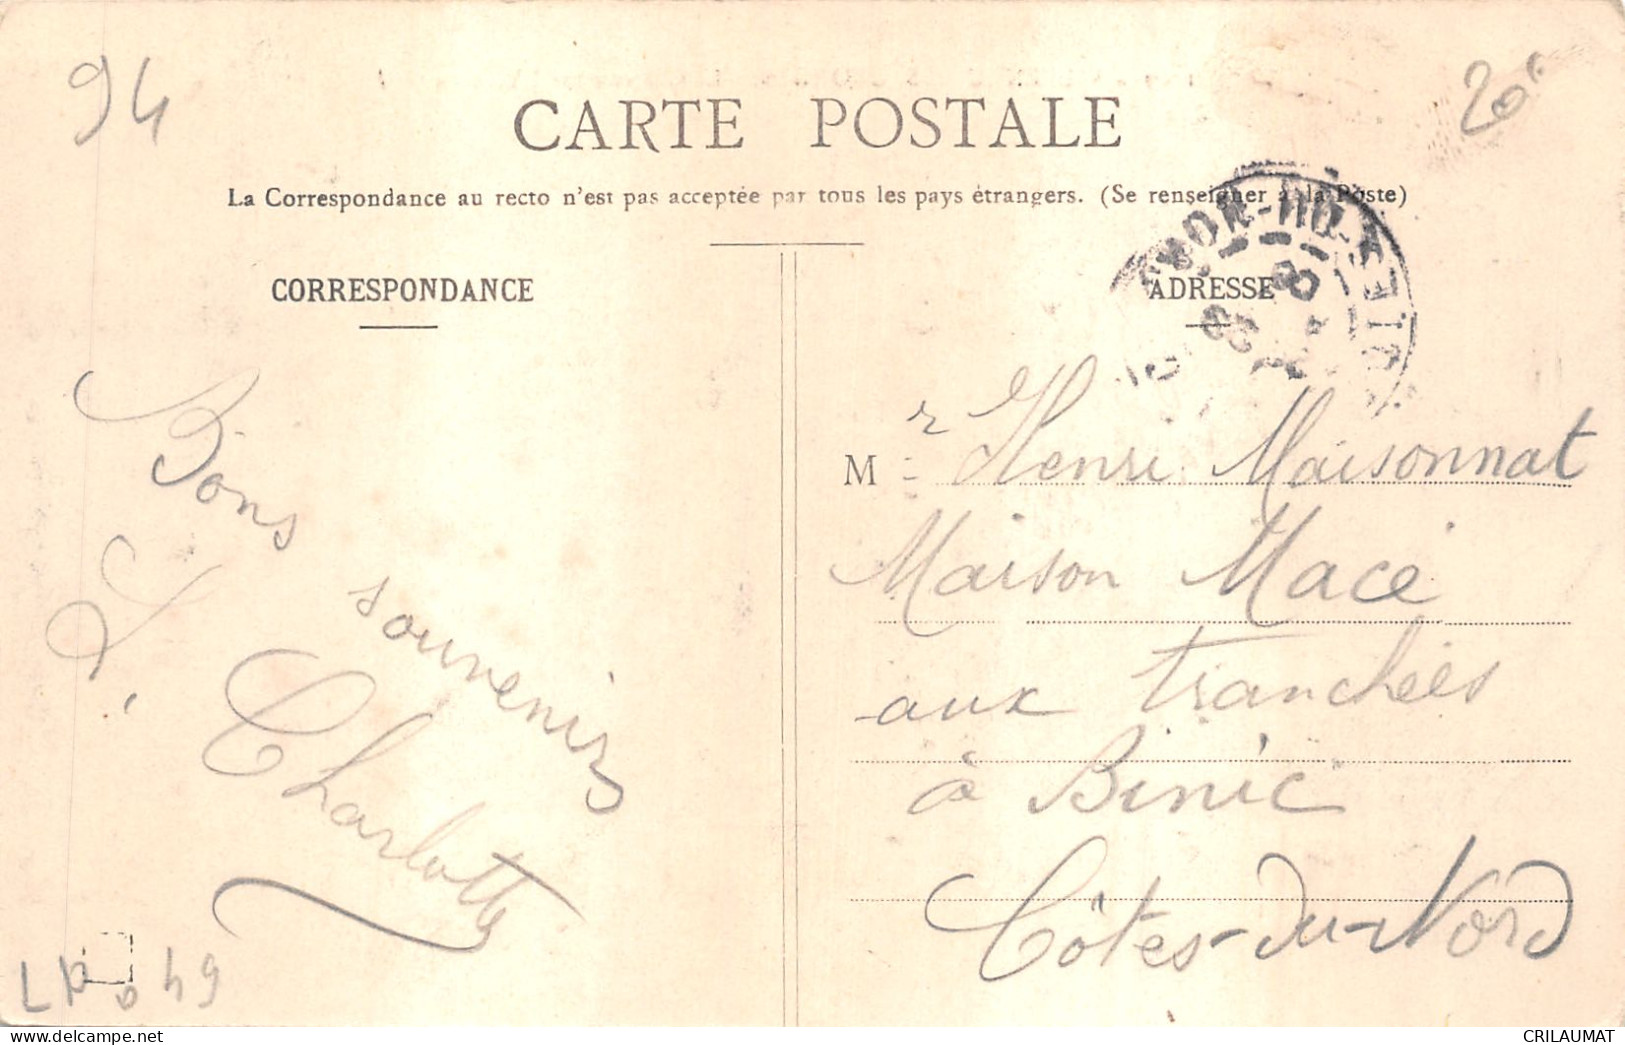 94
20
CARTE POSTALE
La Correspondance au recto n'est pas acceptée par tous les pays étrangers. (Se renseigner à la Poste)
CORRESPONDANCE
ADRESSE
Bons souvenirs
Charlotte
M r Henri Maisonnat
Maison Macé
aux tranchées
à Binic
Côtes-du-Nord
CRILAUMAT